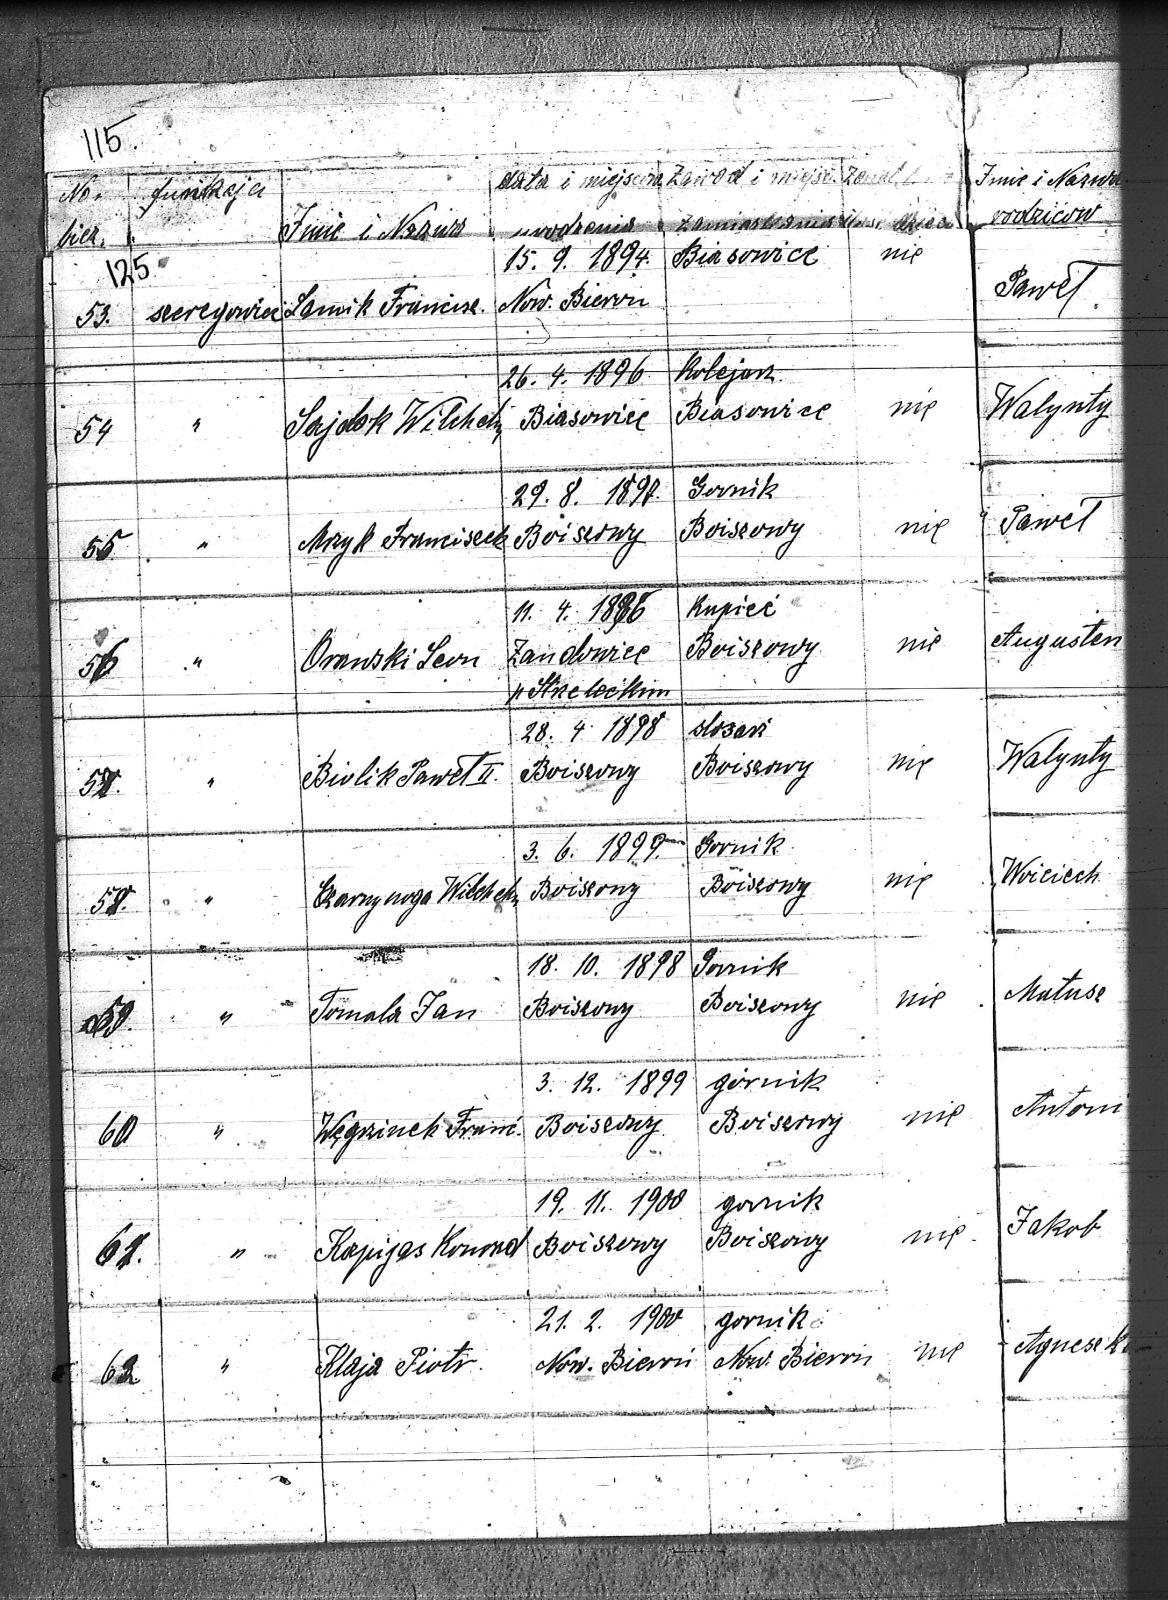 115.
No. funkcja data i miejscow Zawod i miejsc. Imie i Nazwi
biez. Imie i Nazwis urodzenia zamieszkania dzieci rodziców
125. 15. 9. 1894. Biasowice nie
53. szeregowiec Francisz. Now. Bieruń Paweł
26. 4. 1896 Kolejarz
54 " Sajdok Wilhelm Biasowice Biasowice nie Walynty
29. 8. 1898. Gornik
55 " Mrzyk Franciszek Boiszowy Boiszowy nie Paweł
11. 4. 1896 Kupieć
56 " Oranski Leon Zandowice Boiszowy nie Augusten
p Strzeleckim
28. 4 1898 slosarz
57. " Biolik Paweł II. Boiszowy Boiszowy nie Walynty
3. 6. 1899. Gornik
58. " Czarnynoga Wilhelm Boiszowy Boiszowy nie Woiciech
18. 10. 1898 Gornik
59. " Tomala Jan Boiszowy Boiszowy nie Matusz
3. 12. 1899 górnik
60 " Węgrzinek Franc. Boiszowy Boiszowy nie Antoni
19. 11. 1900 gornik
61. " Kapijas Konrad Boiszowy Boiszowy nie Jakob
21. 2. 1900 gornik
62 " Klaja Piotr Now. Bieruń Now. Bierun nie Agneszk